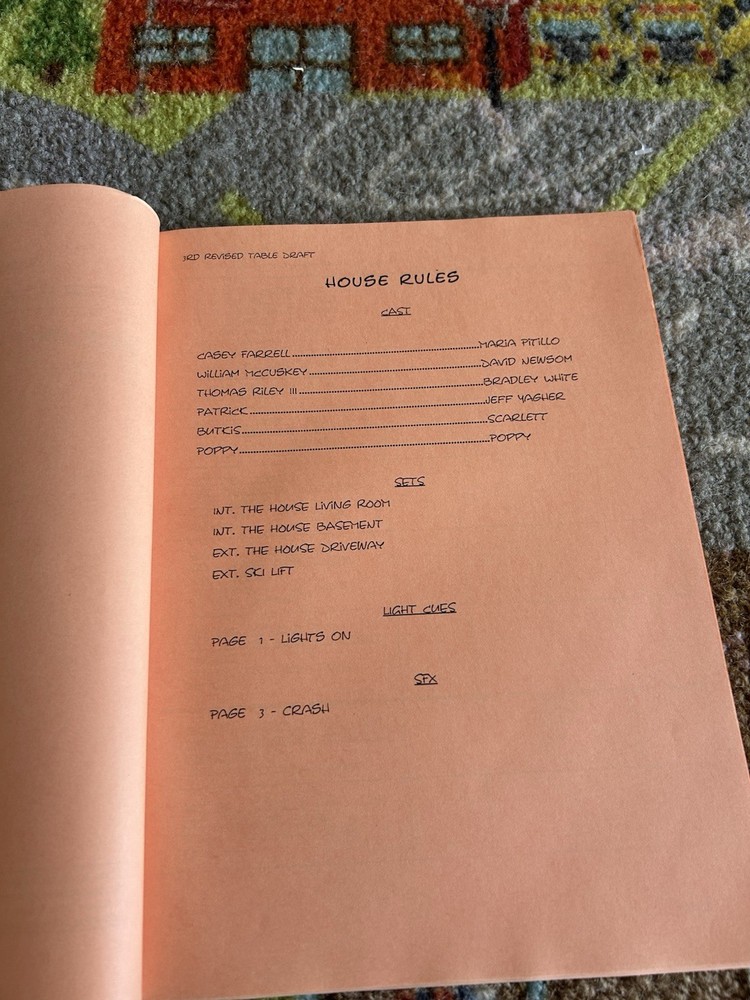 3RD REVISED TABLE DRAFT
HOUSE RULES
CAST
CASEY FARRELL..........MARIA PITILLO
WILLIAM McCUSKEY..........DAVID NEWSOM
THOMAS RILEY III..........BRADLEY WHITE
PATRICK..........JEFF YAGHER
BUTKIS..........SCARLETT
POPPY..........POPPY
SETS
INT. THE HOUSE LIVING ROOM
INT. THE HOUSE BASEMENT
EXT. THE HOUSE DRIVEWAY
EXT. SKI LIFT
LIGHT CUES
PAGE 1 - LIGHTS ON
SFX
PAGE 3 - CRASH